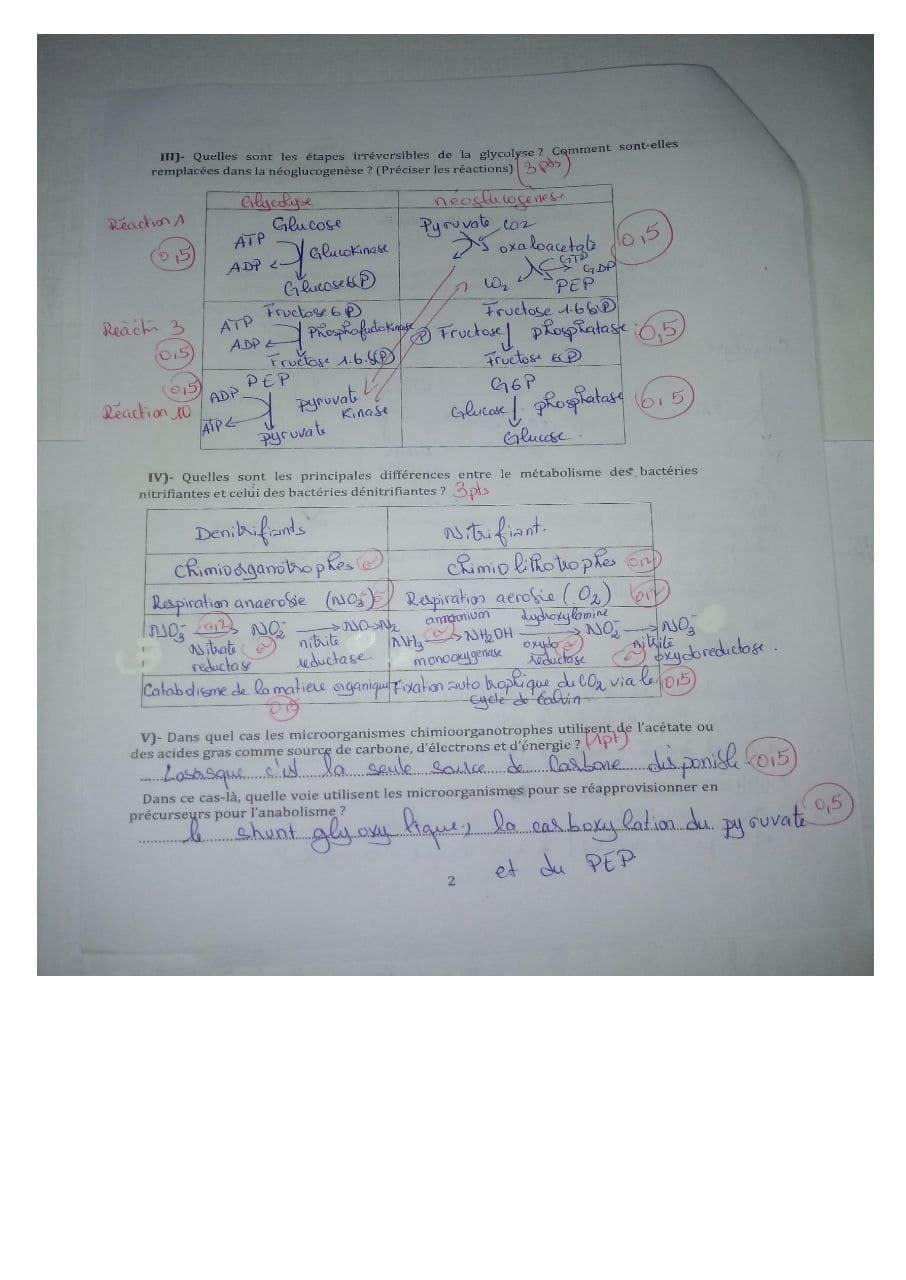 III)- Quelles sont les étapes irréversibles de la glycolyse ? Comment sont-elles
remplacées dans la néoglucogenèse ? (Préciser les réactions) (3 pts)
Glycolyse
néoglucogénèse
Réaction 1
0,5
Glucose
ATP
Glucokinase
ADP
Glucose 6 P
Pyruvate CO2
oxaloacetate
GTP
GDP
PEP
0,5
Réactn 3
0,5
Fructose 6 P
ATP
ADP
Fructose 1.6.
Fructose 1.6
Fructose phosphatase
Fructose 6 P
0,5
Réaction 10
0,5
PEP
ADP
pyruvate
Kinase
ATP
pyruvate
G6P
Glucose phosphatase
Glucose
0,5
IV)- Quelles sont les principales différences entre le métabolisme des bactéries
nitrifiantes et celui des bactéries dénitrifiantes ? 3pts
Denitrifiants
Nitrifiant.
chimioorganotrophes
chimiolithotrophes
Respiration anaerobie (NO3-)
Respiration aerobie (O2)
NO3- NO2- NO N2
Nitrate
reductase
nitrite
reductase
ammonium
NH3 NH2OH NO2- NO3-
monooxygenase
oxydo
reductase
nitrite
oxydoreductase.
Catabolisme de la matiere organique
0,5
Fixation autotrophique du CO2 via le
cycle de Calvin
0,5
V)- Dans quel cas les microorganismes chimioorganotrophes utilisent de l'acétate ou
des acides gras comme source de carbone, d'électrons et d'énergie ? (1pt)
c'est la seule source de Carbone disponible 0,5
Dans ce cas-là, quelle voie utilisent les microorganismes pour se réapprovisionner en
précurseurs pour l'anabolisme ?
le shunt glyoxylique, la carboxylation du pyrouvate 0,5
et du PEP
2